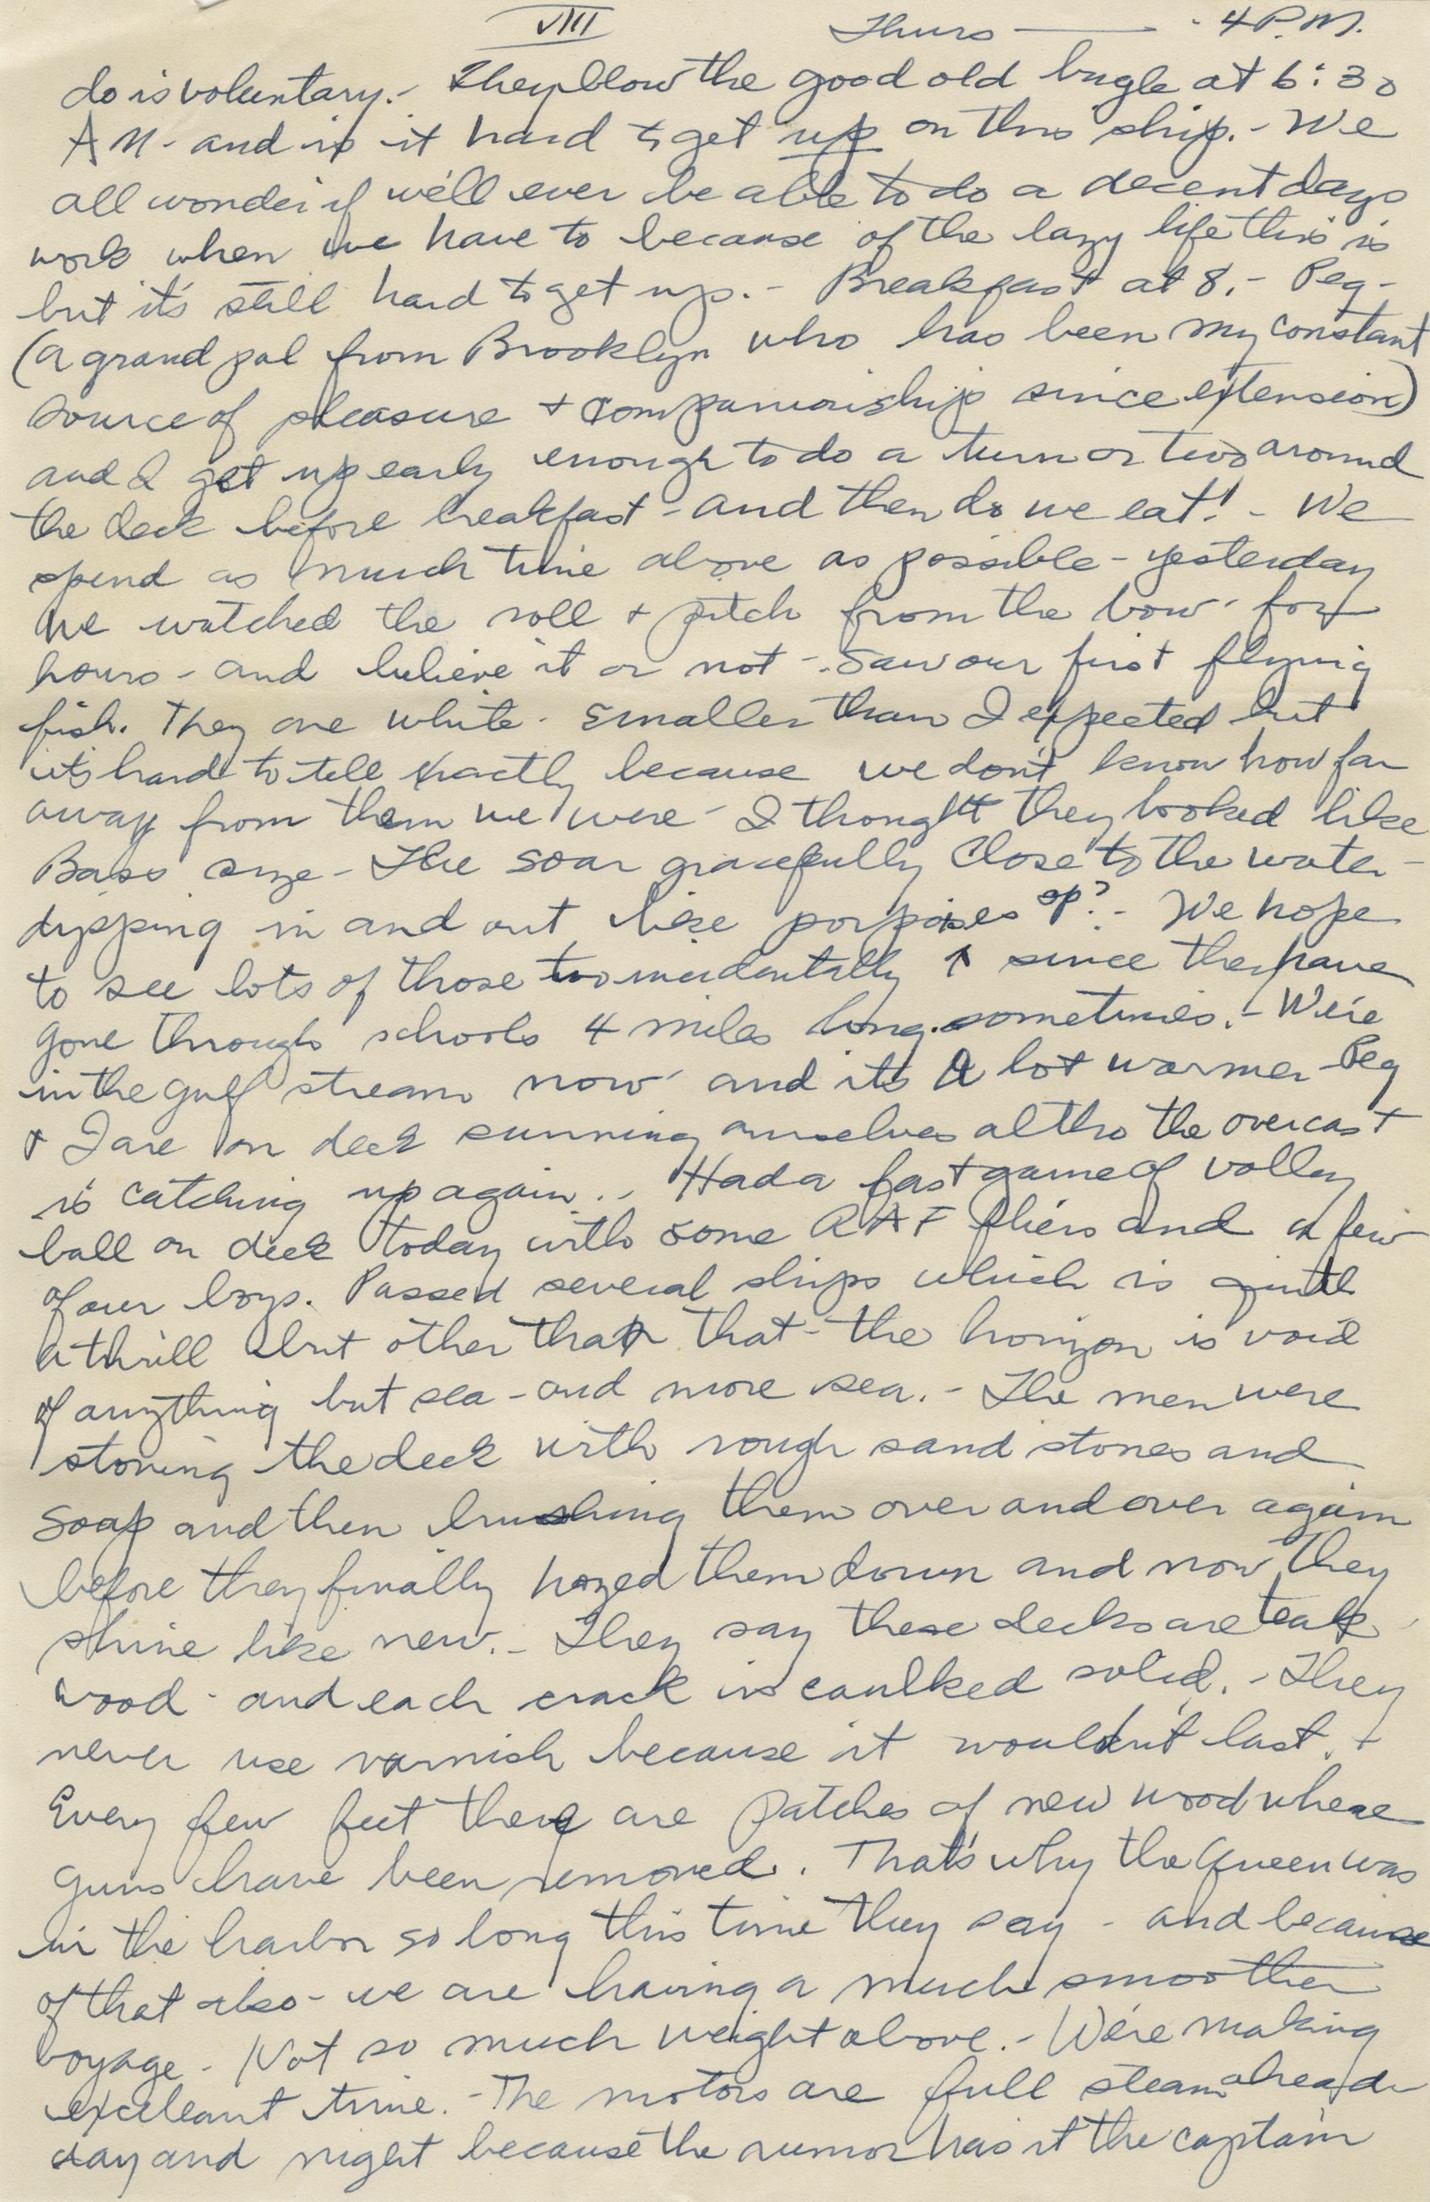 VIII Thurs — 4 P.M.
do is voluntary. - They blow the good old bugle at 6:30
AM - and is it hard to get up on this ship. - We
all wonder if we'll ever be able to do a decent days
work when we have to because of the lazy life this is
but it's still hard to get up. - Breakfast at 8. - Peg -
(a grand pal from Brooklyn who has been my constant
source of pleasure + companionship since extension)
and I get up early enough to do a turn or two around
the deck before breakfast - and then do we eat! - We
spend as much time above as possible - yesterday
we watched the roll + pitch from the bow - for
hours - and believe it or not - saw our first flying
fish. They are white - smaller than I expected but
it's hard to tell exactly because we don't know how far
away from them we were - I thought they looked like
Bass size - The soar gracefully close to the water -
dipping in and out like porpoises sp? - We hope
to see lots of those too incidentally ↑ since they have
gone through schools 4 miles long sometimes. - We're
in the gulf stream now - and it's a lot warmer - Peg
+ I are on deck sunning ourselves altho the overcast
is catching up again. - Had a fast game of volley
ball on deck today with some RAF fliers and a few
of our boys. Passed several ships which is quite
a thrill but other than that - the horizon is void
of anything but sea - and more sea. - The men were
stoning the deck with rough sand stones and
soap and then brushing them over and over again
before they finally hozed them down and now they
shine like new. - They say these decks are teak
wood - and each crack is caulked solid. - They
never use varnish because it wouldn't last. +
Every few feet there are patches of new wood where
guns have been removed. That's why the Queen was
in the harbor so long this time they say - and because
of that also - we are having a much smoother
voyage - Not so much weight above. - We're making
exceleant time. - The motors are full steam ahead
day and night because the rumor has it the captain